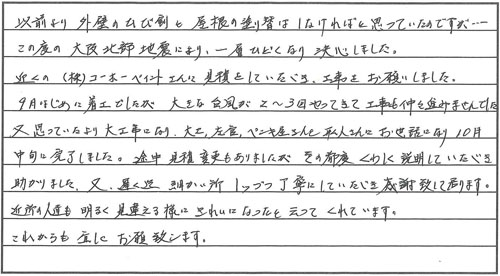 以前より外壁のひび割と屋根の塗り替は しなければと思っていたのですが…
この度の大阪北部地震により、一層ひどくなり決心しました。
近くの(株)コーホーペイントさんに見積をしていただき、工事をお願いしました。
9月はじめに着工でしたが 大きな台風が2～3回やってきて工事も仲々進みませんでした
又思っていたより大工事になり、大工、左官、ペンキ屋さんと職人さんにお世話になり10月
中旬に完了しました。途中見積変更もありましたが その都度 くわしく説明していただき
助かりました、又、遅く迄 細かい所 1つづつ丁寧にしていただき感謝致して居ります。
近所の人達も 明るく見違える様に きれいになったと云ってくれています。
これからも 宜しくお願致します。